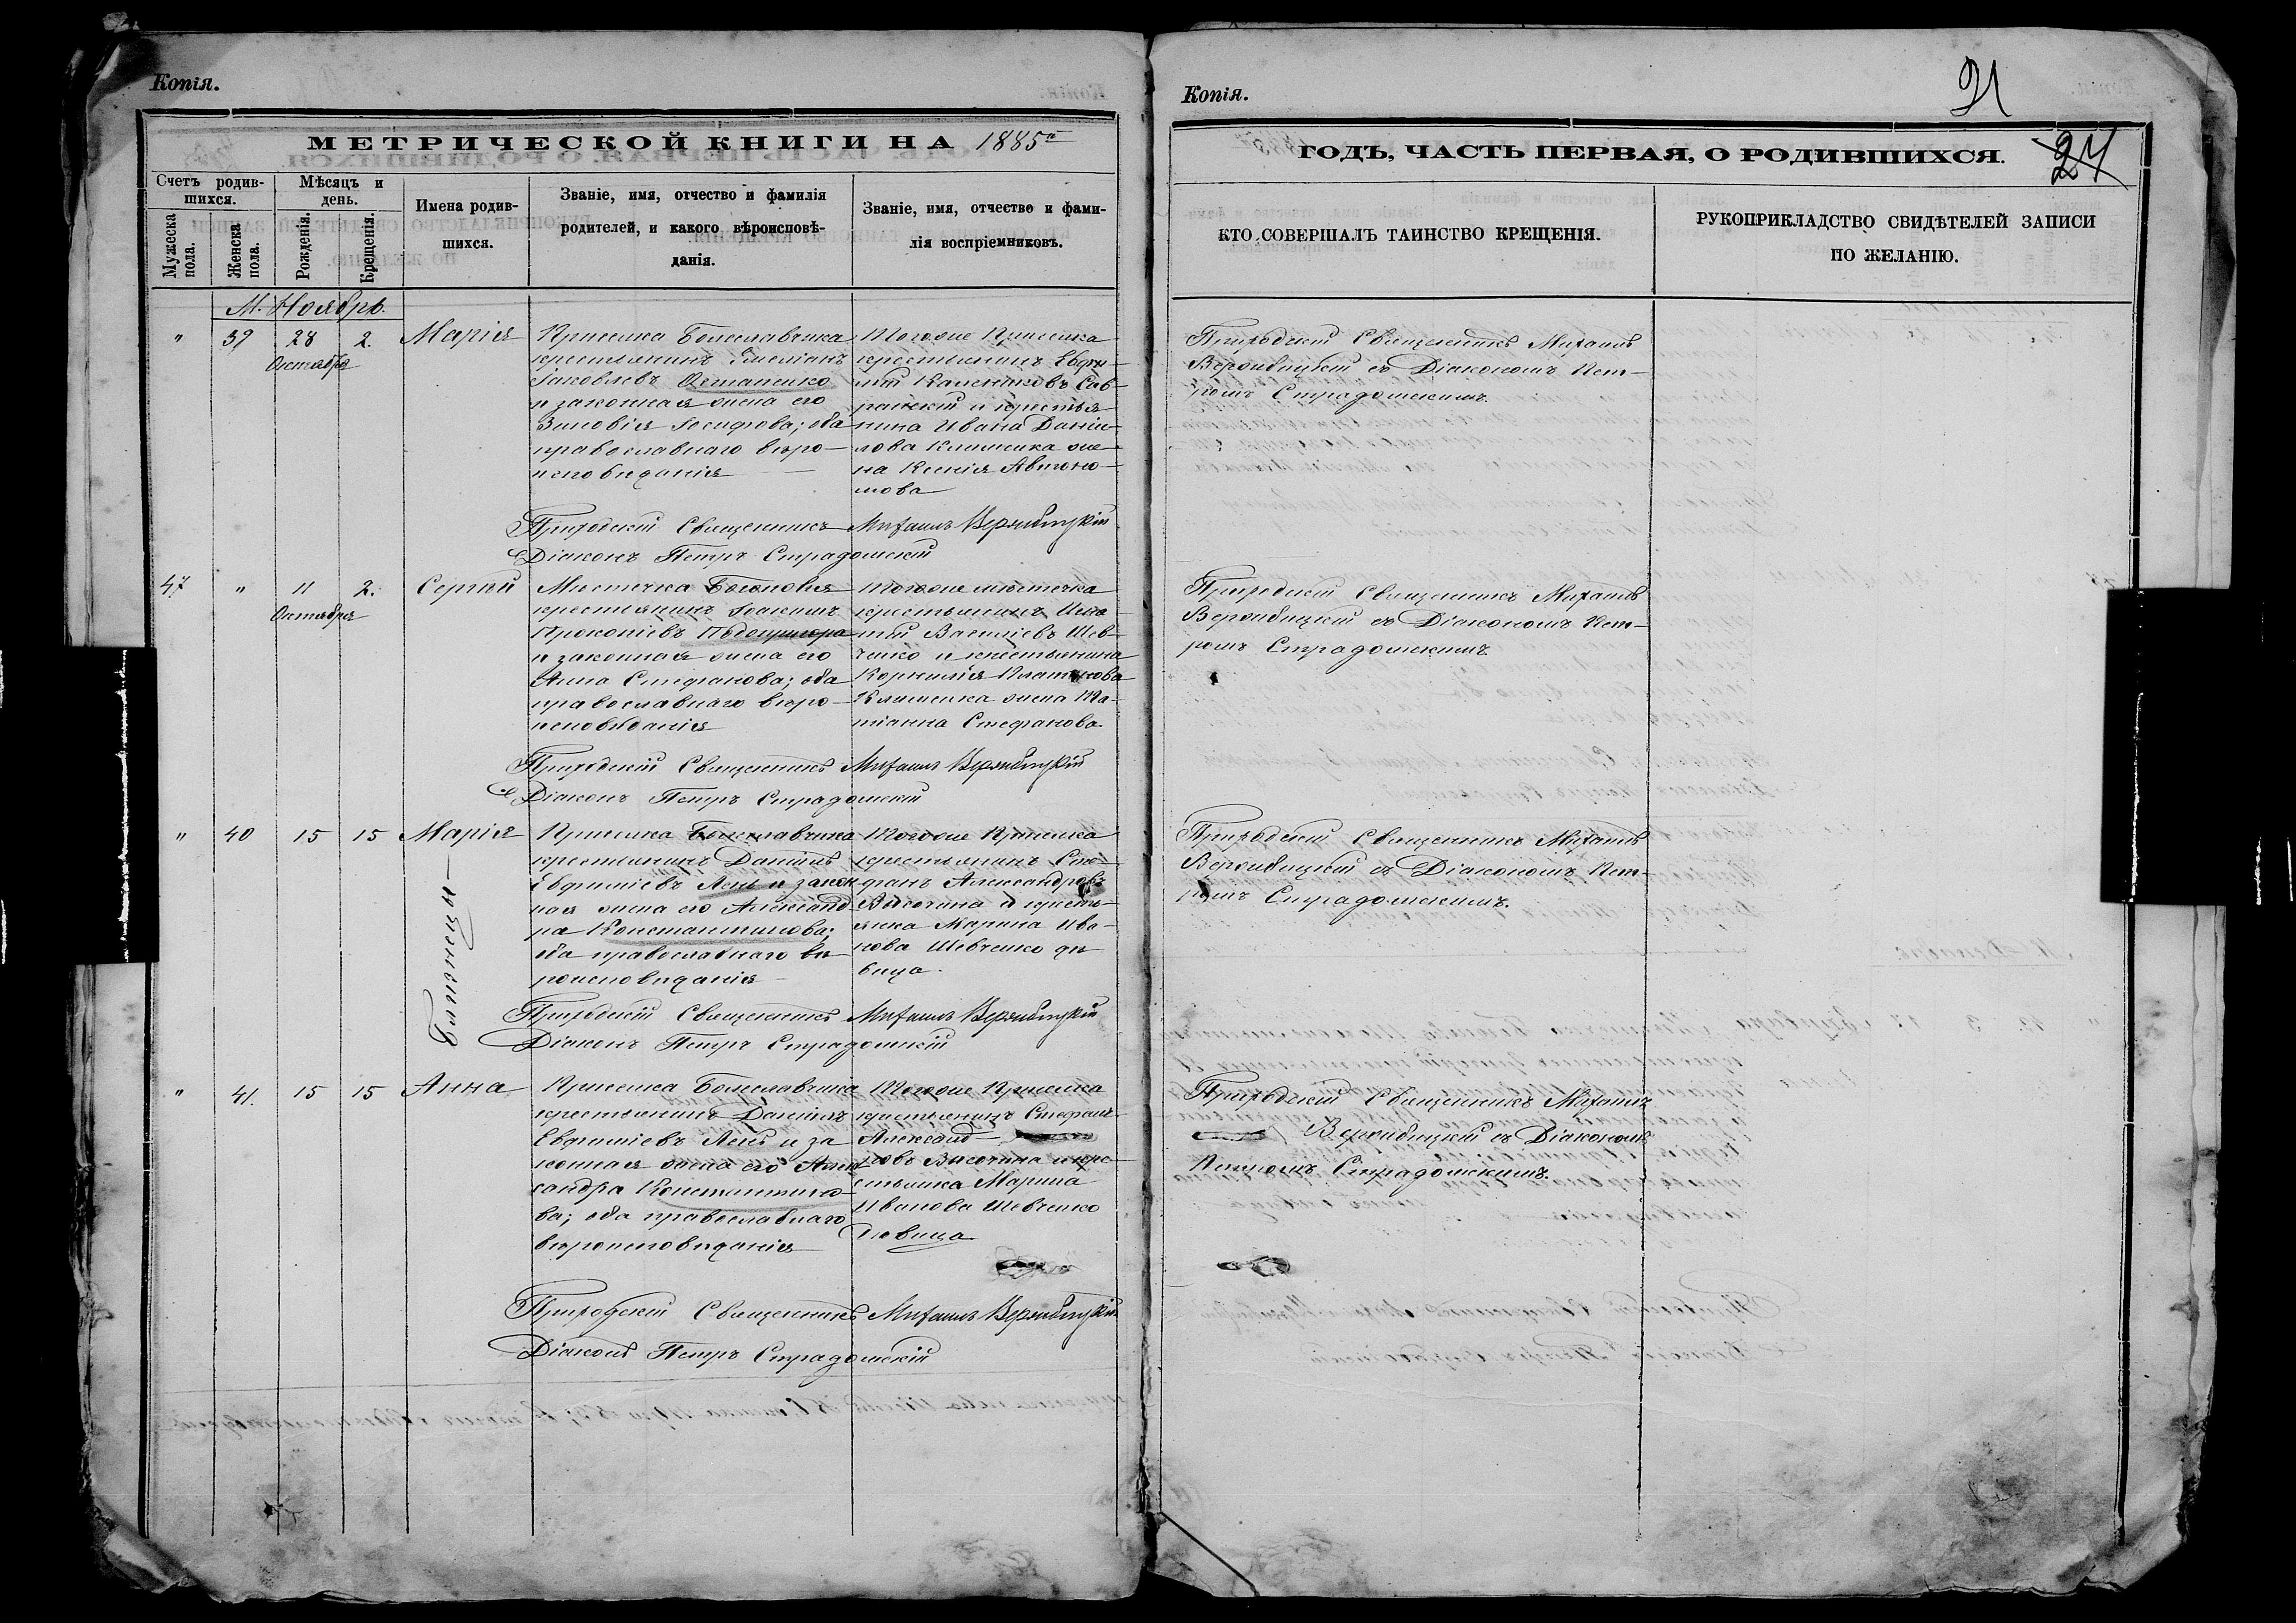 Копія.
МЕТРИЧЕСКОЙ КНИГИ НА 1885
Счетъ родив-
шихся.
Мужеска
пола.
Женска
пола.
Мѣсяцъ и
день.
Рожденія.
Крещенія.
Имена родив-
шихся.
Званіе, имя, отчество и фамилія
родителей, и какого вѣроисповѣ-
данія.
Званіе, имя, отчество и фами-
лія воспріемниковъ.
М. Ноябрь.
" 39 28 2. Марія
Октября
крестьянинъ
Іаковлевъ
и законная жена его
Зиновія Іосифова; оба
православнаго вѣро-
исповѣданія
крестьянинъ Евфи-
мій
и крестья
нина Ивана Даніи-
лова Клименка же-
на Ксенія Автоно-
мова
Приходскій Священникъ Михаилъ Вержибицкій
Діаконъ Петръ Страдомскій
47 " 11 2. Сергій
Октября
Мѣстечка
крестьянинъ Іоакимъ
Прокопіевъ
и законная жена его
Анна Стефанова; оба
православнаго вѣро-
исповѣданія
Тогоже мѣстечка
крестьянинъ Игна
тій Василіевъ Шев-
ченко и крестьянина
Корнилія
Клименка жена Та-
тіанна Стефанова
Приходскій Священникъ Михаилъ Вержибицкій
Діаконъ Петръ Страдомскій
" 40 15 15 Марія
Близнецы
крестьянинъ Даніилъ
Евфиміевъ Лень и закон
ная жена его Александ
ра Константинова;
оба православнаго вѣ
роисповѣданія
крестьянинъ Сте-
фанъ Александровъ
Височина и кресть-
янка Марина Ива-
нова Шевченко дѣ
вица.
Приходскій Священникъ Михаилъ Вержибицкій
Діаконъ Петръ Страдомскій
" 41. 15 15 Анна
крестьянинъ Даніилъ
Евфиміевъ Лень и за
конная жена его Алек
сандра Константино-
ва; оба православнаго
вѣроисповѣданія
крестьянинъ Стефанъ
Александ-
ровъ Височина и кре-
стьянка Марина
Иванова Шевченко
дѣвица
Приходскій Священникъ Михаилъ Вержибицкій
Діаконъ Петръ Страдомскій
Копія.
21
24
ГОДЪ, ЧАСТЬ ПЕРВАЯ, О РОДИВШИХСЯ.
КТО СОВЕРШАЛЪ ТАИНСТВО КРЕЩЕНІЯ.
РУКОПРИКЛАДСТВО СВИДѢТЕЛЕЙ ЗАПИСИ
ПО ЖЕЛАНІЮ.
Приходскій Священникъ Михаилъ
Вержибицкій съ Діакономъ Пет-
ромъ Страдомскимъ.
Приходскій Священникъ Михаилъ
Вержибицкій съ Діакономъ Пет-
ромъ Страдомскимъ.
Приходскій Священникъ Михаилъ
Вержибицкій съ Діакономъ Пет-
ромъ Страдомскимъ.
Приходскій Священникъ Михаилъ
Вержибицкій съ Діакономъ
Петромъ Страдомскимъ.